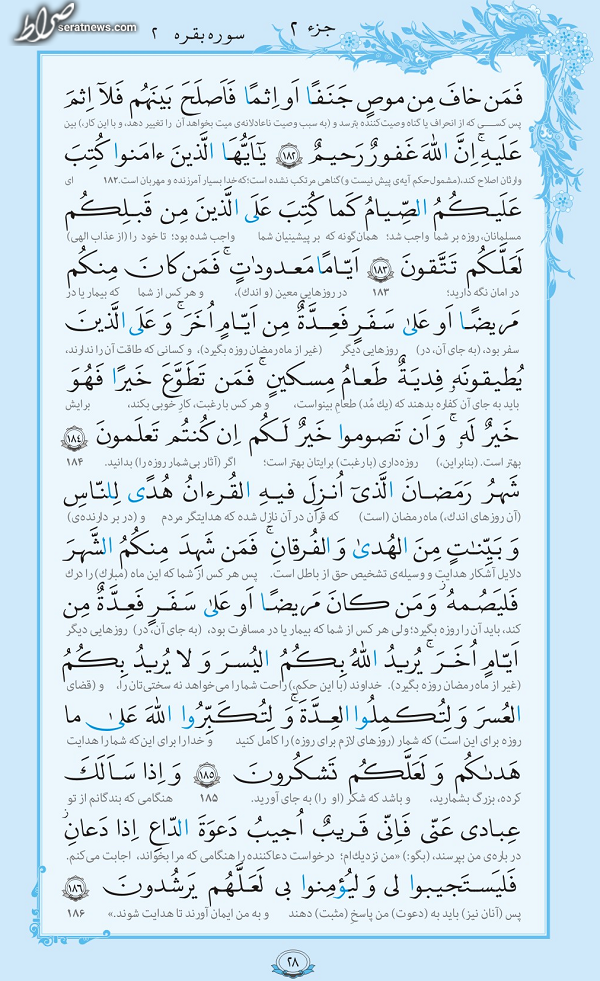 صراط
seratnews.com
جزء ۲
سوره بقره ۲
فَمَن خافَ مِن موصٍ جَنَفًا اَو اِثمًا فَاَصلَحَ بَينَهُم فَلآ اِثمَ
پس کسـی که از انحراف یا گناه وصیت‌کننده بترسد و (به سبب وصیت ناعادلانه‌ی میت بخواهد آن را تغییر دهد، و با این کار،) بین
عَلَيهِ ۚ اِنَّ اللهَ غَفورٌ رَحيمٌ ﴿۱۸۲﴾ يٰاَيُّهَا الَّذينَ ءامَنوا كُتِبَ
وارثان اصلاح کند، (مشمول حکم آیه‌ی پیش نیست و) گناهی مرتکب نشده است؛ که خدا بسیار آمرزنده و مهربان است. ۱۸۲ ای
عَلَيكُمُ الصِّيامُ كَما كُتِبَ عَلَى الَّذينَ مِن قَبلِكُم
مسلمانان، روزه بر شما واجب شد؛ همان‌گونه که بر پیشینیان شما واجب شده بود؛ تا خود را (از عذاب الهی)
لَعَلَّكُم تَتَّقونَ ﴿۱۸۳﴾ اَيّامًا مَعدوداتٍ ۚ فَمَن كانَ مِنكُم
در امان نگه دارید؛ ۱۸۳ در روزهایی معین (و اندك)، و هر کس از شما که بیمار یا در
مَريضًا اَو عَلىٰ سَفَرٍ فَعِدَّةٌ مِن اَيّامٍ اُخَرَ ۚ وَ عَلَى الَّذينَ
سفر بود، (به جای آن، در) روزهایی دیگر (غیر از ماه رمضان روزه بگیرد)، و کسانی که طاقت آن را ندارند،
يُطيقونَهٗ فِديَةٌ طَعامُ مِسكينٍ ۖ فَمَن تَطَوَّعَ خَيرًا فَهُوَ
باید به جای آن کفاره بدهند که (یك مُد) طعام بینواست، و هر کس با رغبت، کار خوبی بکند، برایش
خَيرٌ لَهٗ ۚ وَ اَن تَصوموا خَيرٌ لَكُم اِن كُنتُم تَعلَمونَ ﴿۱۸۴﴾
بهتر است. (بنابراین،) روزه‌داری (با رغبت) برایتان بهتر است؛ اگر (آثار بی‌شمار روزه را) بدانید. ۱۸۴
شَهرُ رَمَضانَ الَّذيٓ اُنزِلَ فيهِ القُرءانُ هُدًى لِلنّاسِ
(آن روزهای اندك،) ماه رمضان (است) که قرآن در آن نازل شده که هدایتگر مردم و (در بر دارنده‌ی)
وَ بَيِّنٰتٍ مِنَ الهُدىٰ وَ الفُرقانِ ۚ فَمَن شَهِدَ مِنكُمُ الشَّهرَ
دلایل آشکار هدایت و وسیله‌ی تشخیص حق از باطل است. پس هر کس از شما که این ماه (مبارك) را درك
فَليَصُمهُ ۖ وَ مَن كانَ مَريضًا اَو عَلىٰ سَفَرٍ فَعِدَّةٌ مِن
کند، باید آن را روزه بگیرد؛ ولی هر کس از شما که بیمار یا در مسافرت بود، (به جای آن، در) روزهایی دیگر
اَيّامٍ اُخَرَ ۗ يُريدُ اللهُ بِكُمُ اليُسرَ وَ لا يُريدُ بِكُمُ
(غیر از ماه رمضان روزه بگیرد). خداوند (با این حکم،) راحت شما را می‌خواهد نه سختی‌تان را، و (قضای
العُسرَ وَ لِتُكمِلُوا العِدَّةَ وَ لِتُكَبِّرُوا اللهَ عَلىٰ ما
روزه برای این است) که شمار (روزهای لازم برای روزه) را کامل کنید و خدا را برای این‌که شما را هدایت
هَدىٰكُم وَ لَعَلَّكُم تَشكُرونَ ﴿۱۸۵﴾ وَ اِذا سَاَلَكَ
کرده، بزرگ بشمارید، و باشد که شکر (او را) به جای آورید. ۱۸۵ هنگامی که بندگانم از تو
عِبادي عَنّي فَاِنّي قَريبٌ اُجيبُ دَعوَةَ الدّاعِ اِذا دَعانِ ۖ
در باره‌ی من بپرسند، (بگو:) «من نزدیك‌ام؛ درخواست دعاکننده را هنگامی که مرا بخواند، اجابت می‌کنم.
فَليَستَجيبوا لي وَليُؤمِنوا بي لَعَلَّهُم يَرشُدونَ ﴿۱۸۶﴾
پس (آنان نیز) باید به (دعوت) من پاسخ (مثبت) دهند و به من ایمان آورند تا هدایت شوند.» ۱۸۶
۲۸